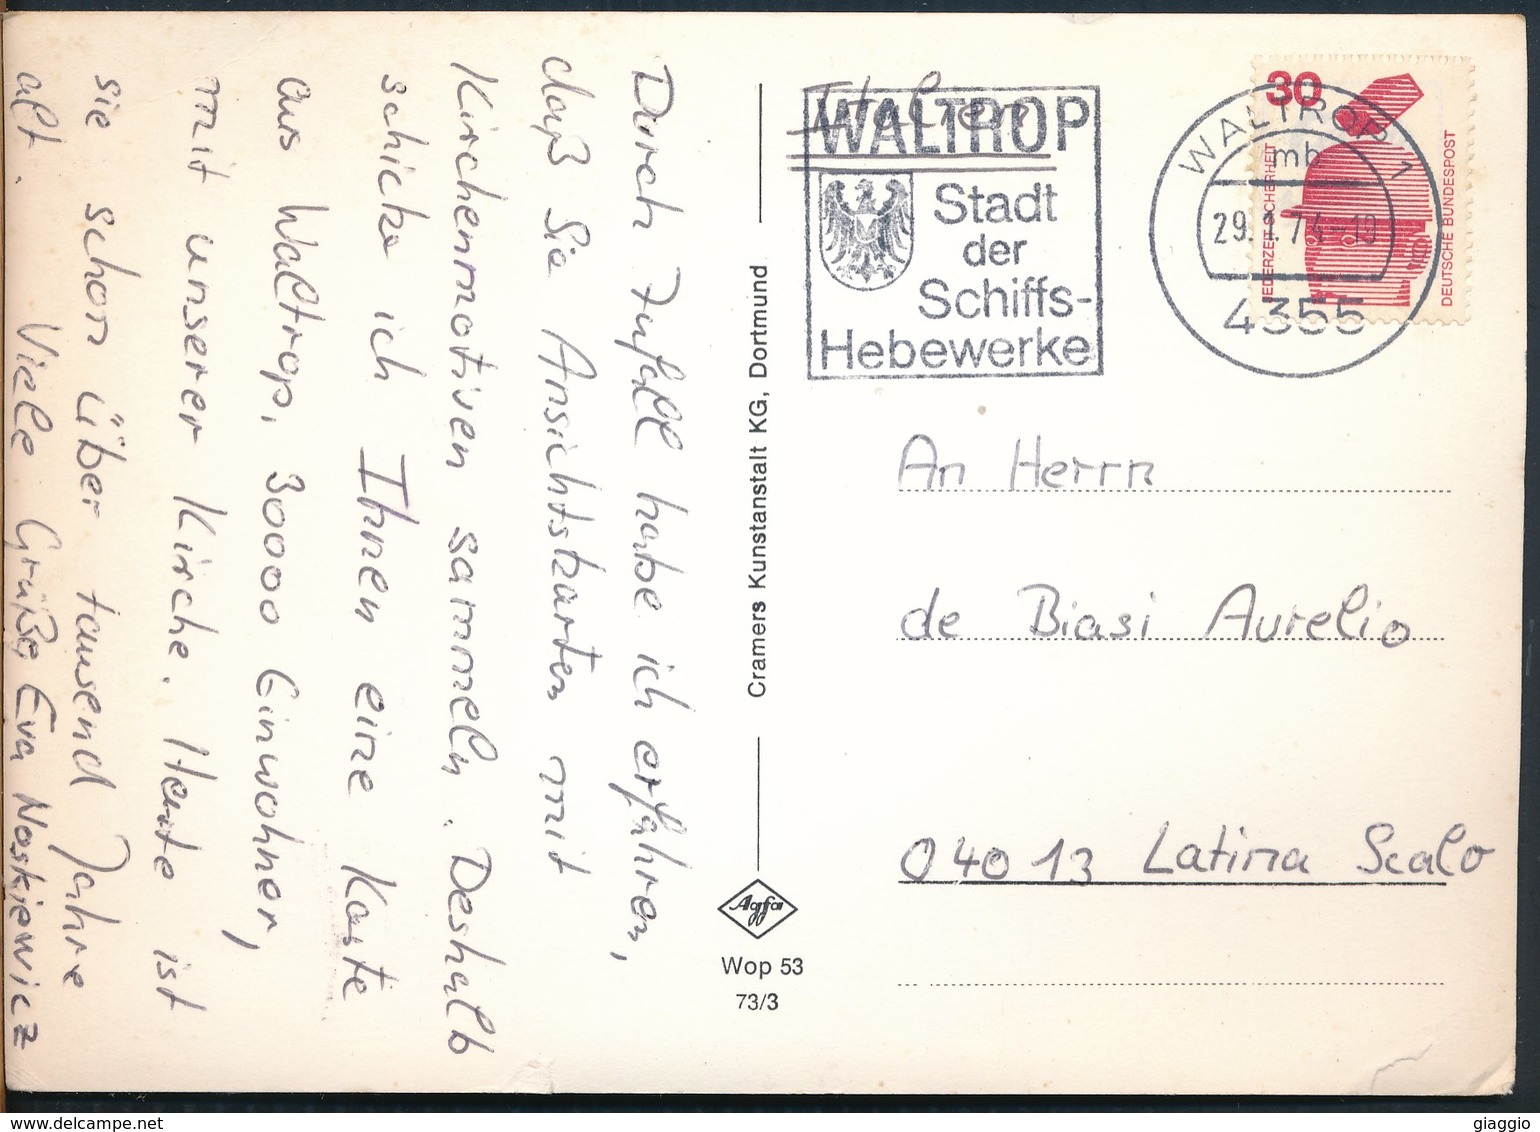 Durch Zufall habe ich erfahren,
daß Sie Ansichtskarten mit
Kirchenmotiven sammeln. Deshalb
schicke ich Ihnen eine Karte
aus Waltrop, 30000 Einwohner,
mit unserer Kirche. Heute ist
sie schon über tausend Jahre
alt. Viele Grüße Eva Noskiewicz
Cramers Kunstanstalt KG, Dortmund
Agfa
Wop 53
73/3
Italien
WALTROP
Stadt
der
Schiffs-
Hebewerke
30
JEDERZEIT SICHERHEIT
DEUTSCHE BUNDESPOST
WALTROP 1
mb
29.1.74-19
4355
An Herrn
de Biasi Aurelio
04013 Latina Scalo
www.delcampe.net
giaggio